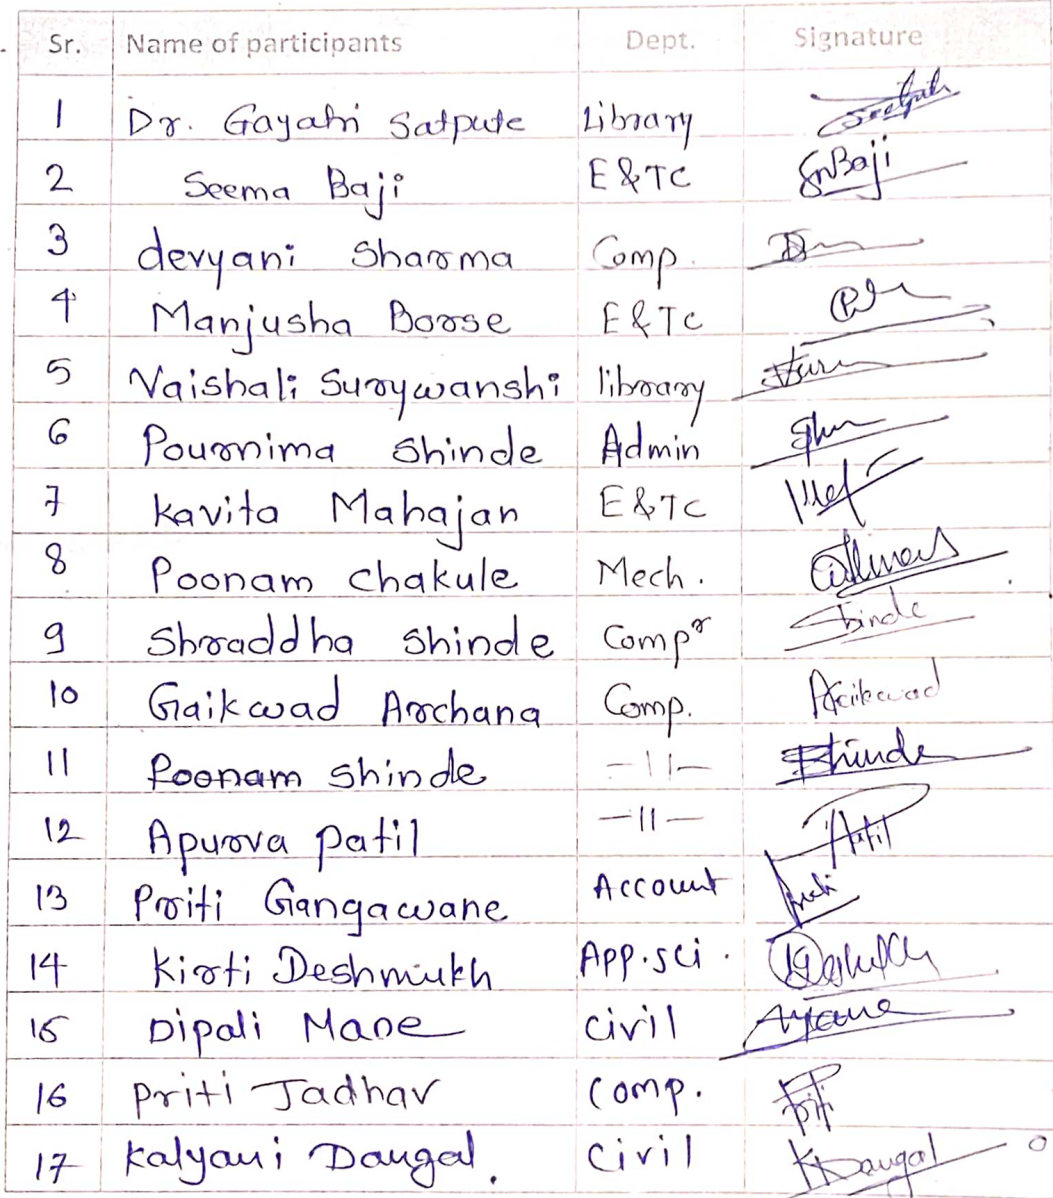 Sr. Name of participants Dept. Signature
1 Dr. Gayatri Satpute Library
2 Seema Baji E&TC SnBaji
3 devyani Sharma Comp.
4 Manjusha Borse E&TC
5 Vaishali Surywanshi library
6 Pournima Shinde Admin
7 Kavita Mahajan E&TC
8 Poonam Chakule Mech.
9 Shraddha Shinde Compr Shinde
10 Gaikwad Archana Comp. AGaikwad
11 Poonam Shinde -11- Shinde
12 Apurva Patil -11- Patil
13 Priti Gangawane Account
14 Kirti Deshmukh App.sci.
15 Dipali Mane Civil
16 Priti Jadhav Comp.
17 Kalyani Dangal. Civil KDangal